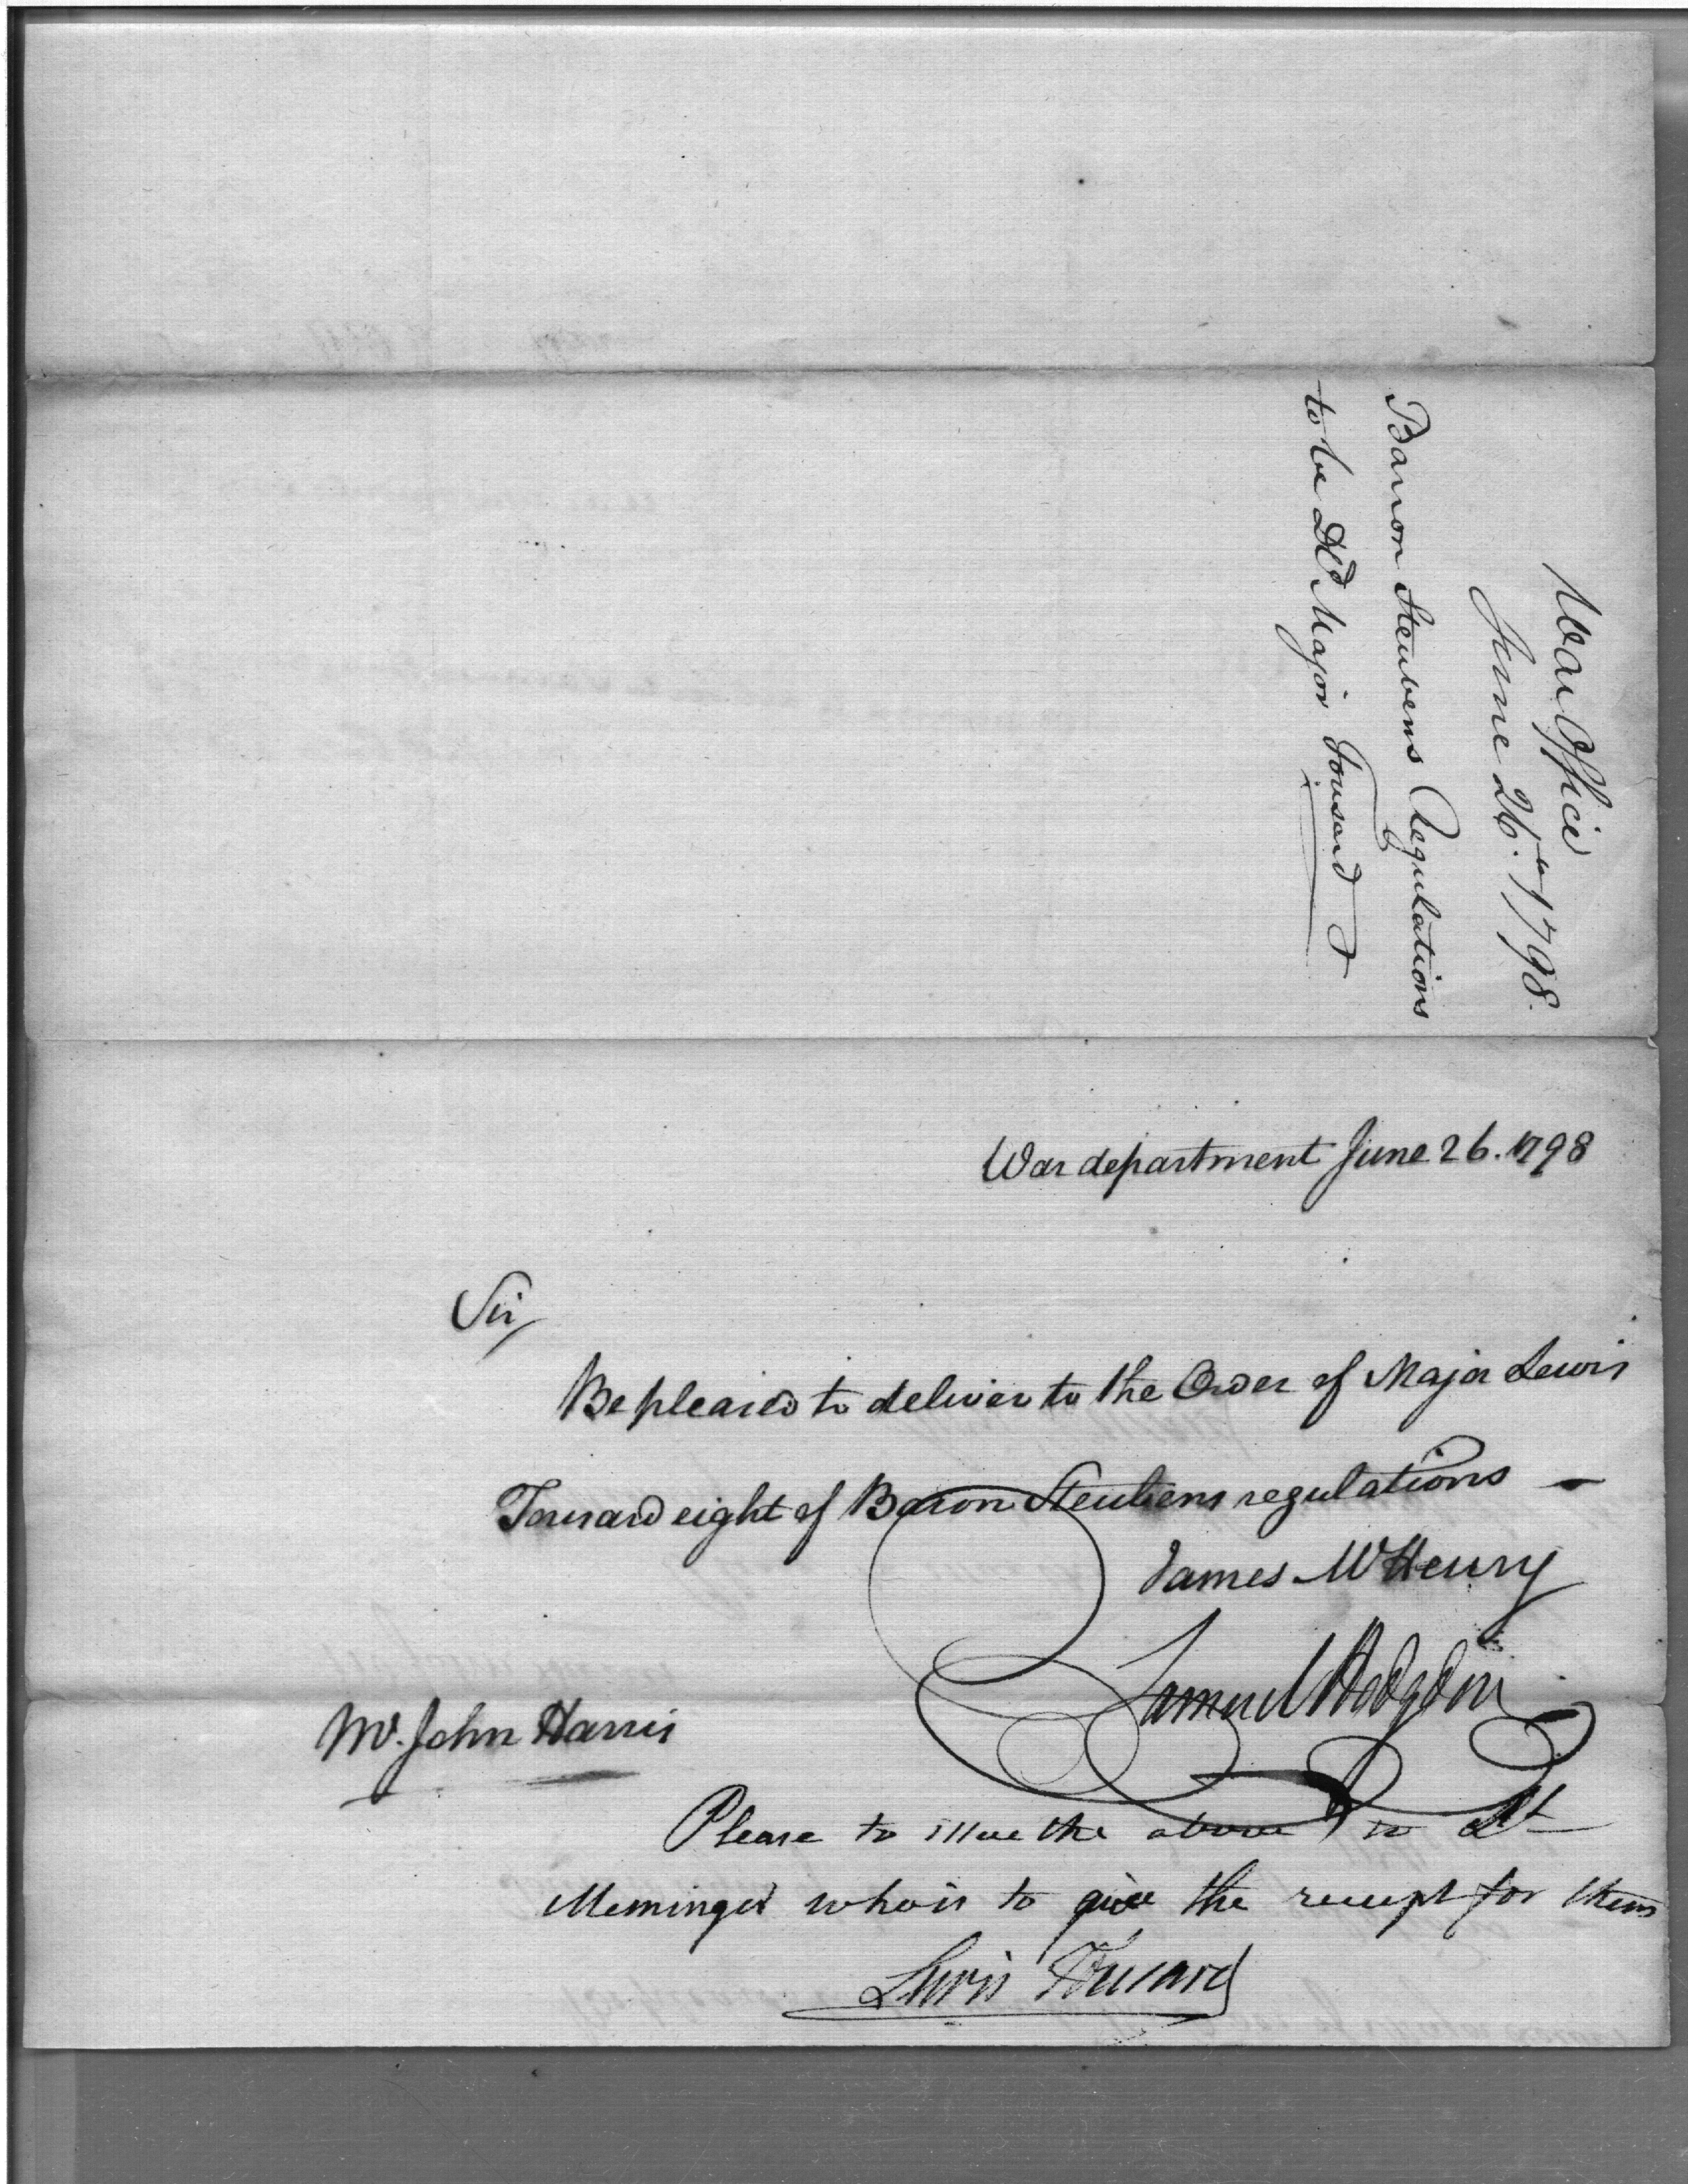 War Office
June 26.th 1798.
Barron Steubens Regulations
to be Dd Major Tousard
War department June 26. 1798
Sir/
Be pleased to deliver to the Order of Major Lewis
Tousard eight of Baron Steubens regulations —
James McHenry
Samuel Hodgdon
Mr. John Harris
Please to issue the above to Lt
Meminger who is to give the receipt for them
Lewis Tousard